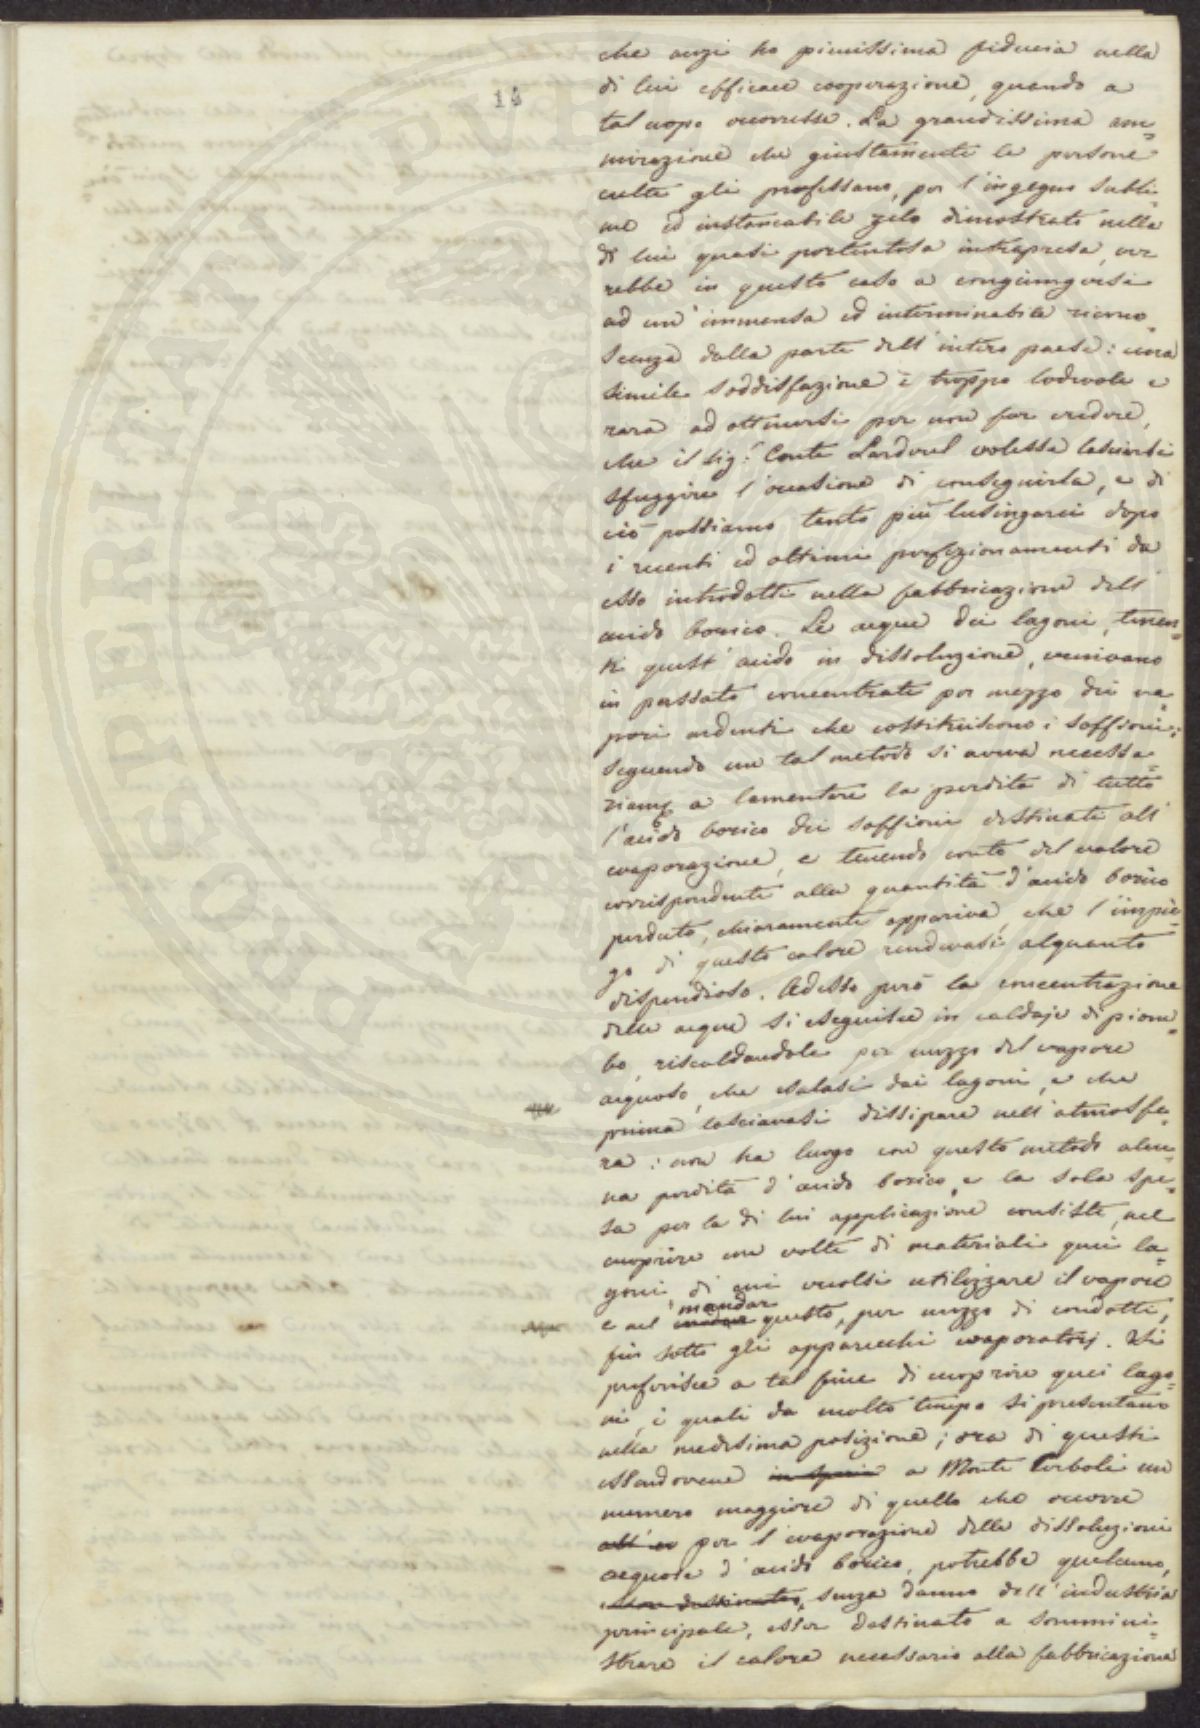 14
che anzi ho pienissima fiducia nella
di lui efficace cooperazione, quando a
tal uopo occorresse. La grandissima am=
mirazione che giustamente le persone
culte gli professano, per l'ingegno subli=
me ed instancabile zelo dimostrato nella
di lui quasi portentosa intrapresa, ver
rebbe in questo caso a congiungersi
ad un' immensa ed interminabile ricono=
scenza dalla parte dell' intero paese: una
simile soddisfazione è troppo lodevole e
rara ad ottenersi per non far credere,
che il Sig.r Conte Larderel volesse lasciarsi
sfuggire l'occasione di conseguirla, e di
ciò possiamo tanto più lusingarci dopo
i recenti ed ottimi perfezionamenti da
esso introdotti nella fabbricazione dell'
acido borico. Le acque dei lagoni, tenen=
ti quest' acido in dissoluzione, venivano
in passato concentrate per mezzo dei va=
pori ardenti che costituiscono i soffioni:
seguendo un tal metodo si aveva necessa=
riame a lamentare la perdita di tutto
l'acido borico dei soffioni destinati all'
evaporazione, e tenendo conto del valore
corrispondente alla quantità d'acido borico
perduto, chiaramente appariva, che l'impie=
go di questo calore rendevasi alquanto
dispendioso. Adesso però la concentrazione
delle acque si eseguisce in caldaje di piom=
bo, riscaldandole per mezzo del vapore
acquoso, che esalasi dai lagoni, e che
prima lasciavasi dissipare nell' atmosfe=
ra: non ha luogo con questo metodo alcu=
na perdita d'acido borico, e la sola spe=
sa per la di lui applicazione consiste, nel
cuoprire con volte di materiali quei la=
goni, di cui vuolsi utilizzare il vapore
mandar
e nel questo, per mezzo di condotti,
fin sotto gli apparecchi evaporatorj. Si
preferisce a tal fine di cuoprire quei lago=
ni, i quali da molto tempo si presentano
nella medesima posizione; ora di questi
essendovene in specie a Monte Cerboli un
numero maggiore di quello che occorre
all'ev per l'evaporazione delle dissoluzioni
acquose d'acido borico, potrebbe qualcuno,
esser destinato, senza danno dell' industria
principale, esser destinato a sommini=
strare il calore necessario alla fabbricazione